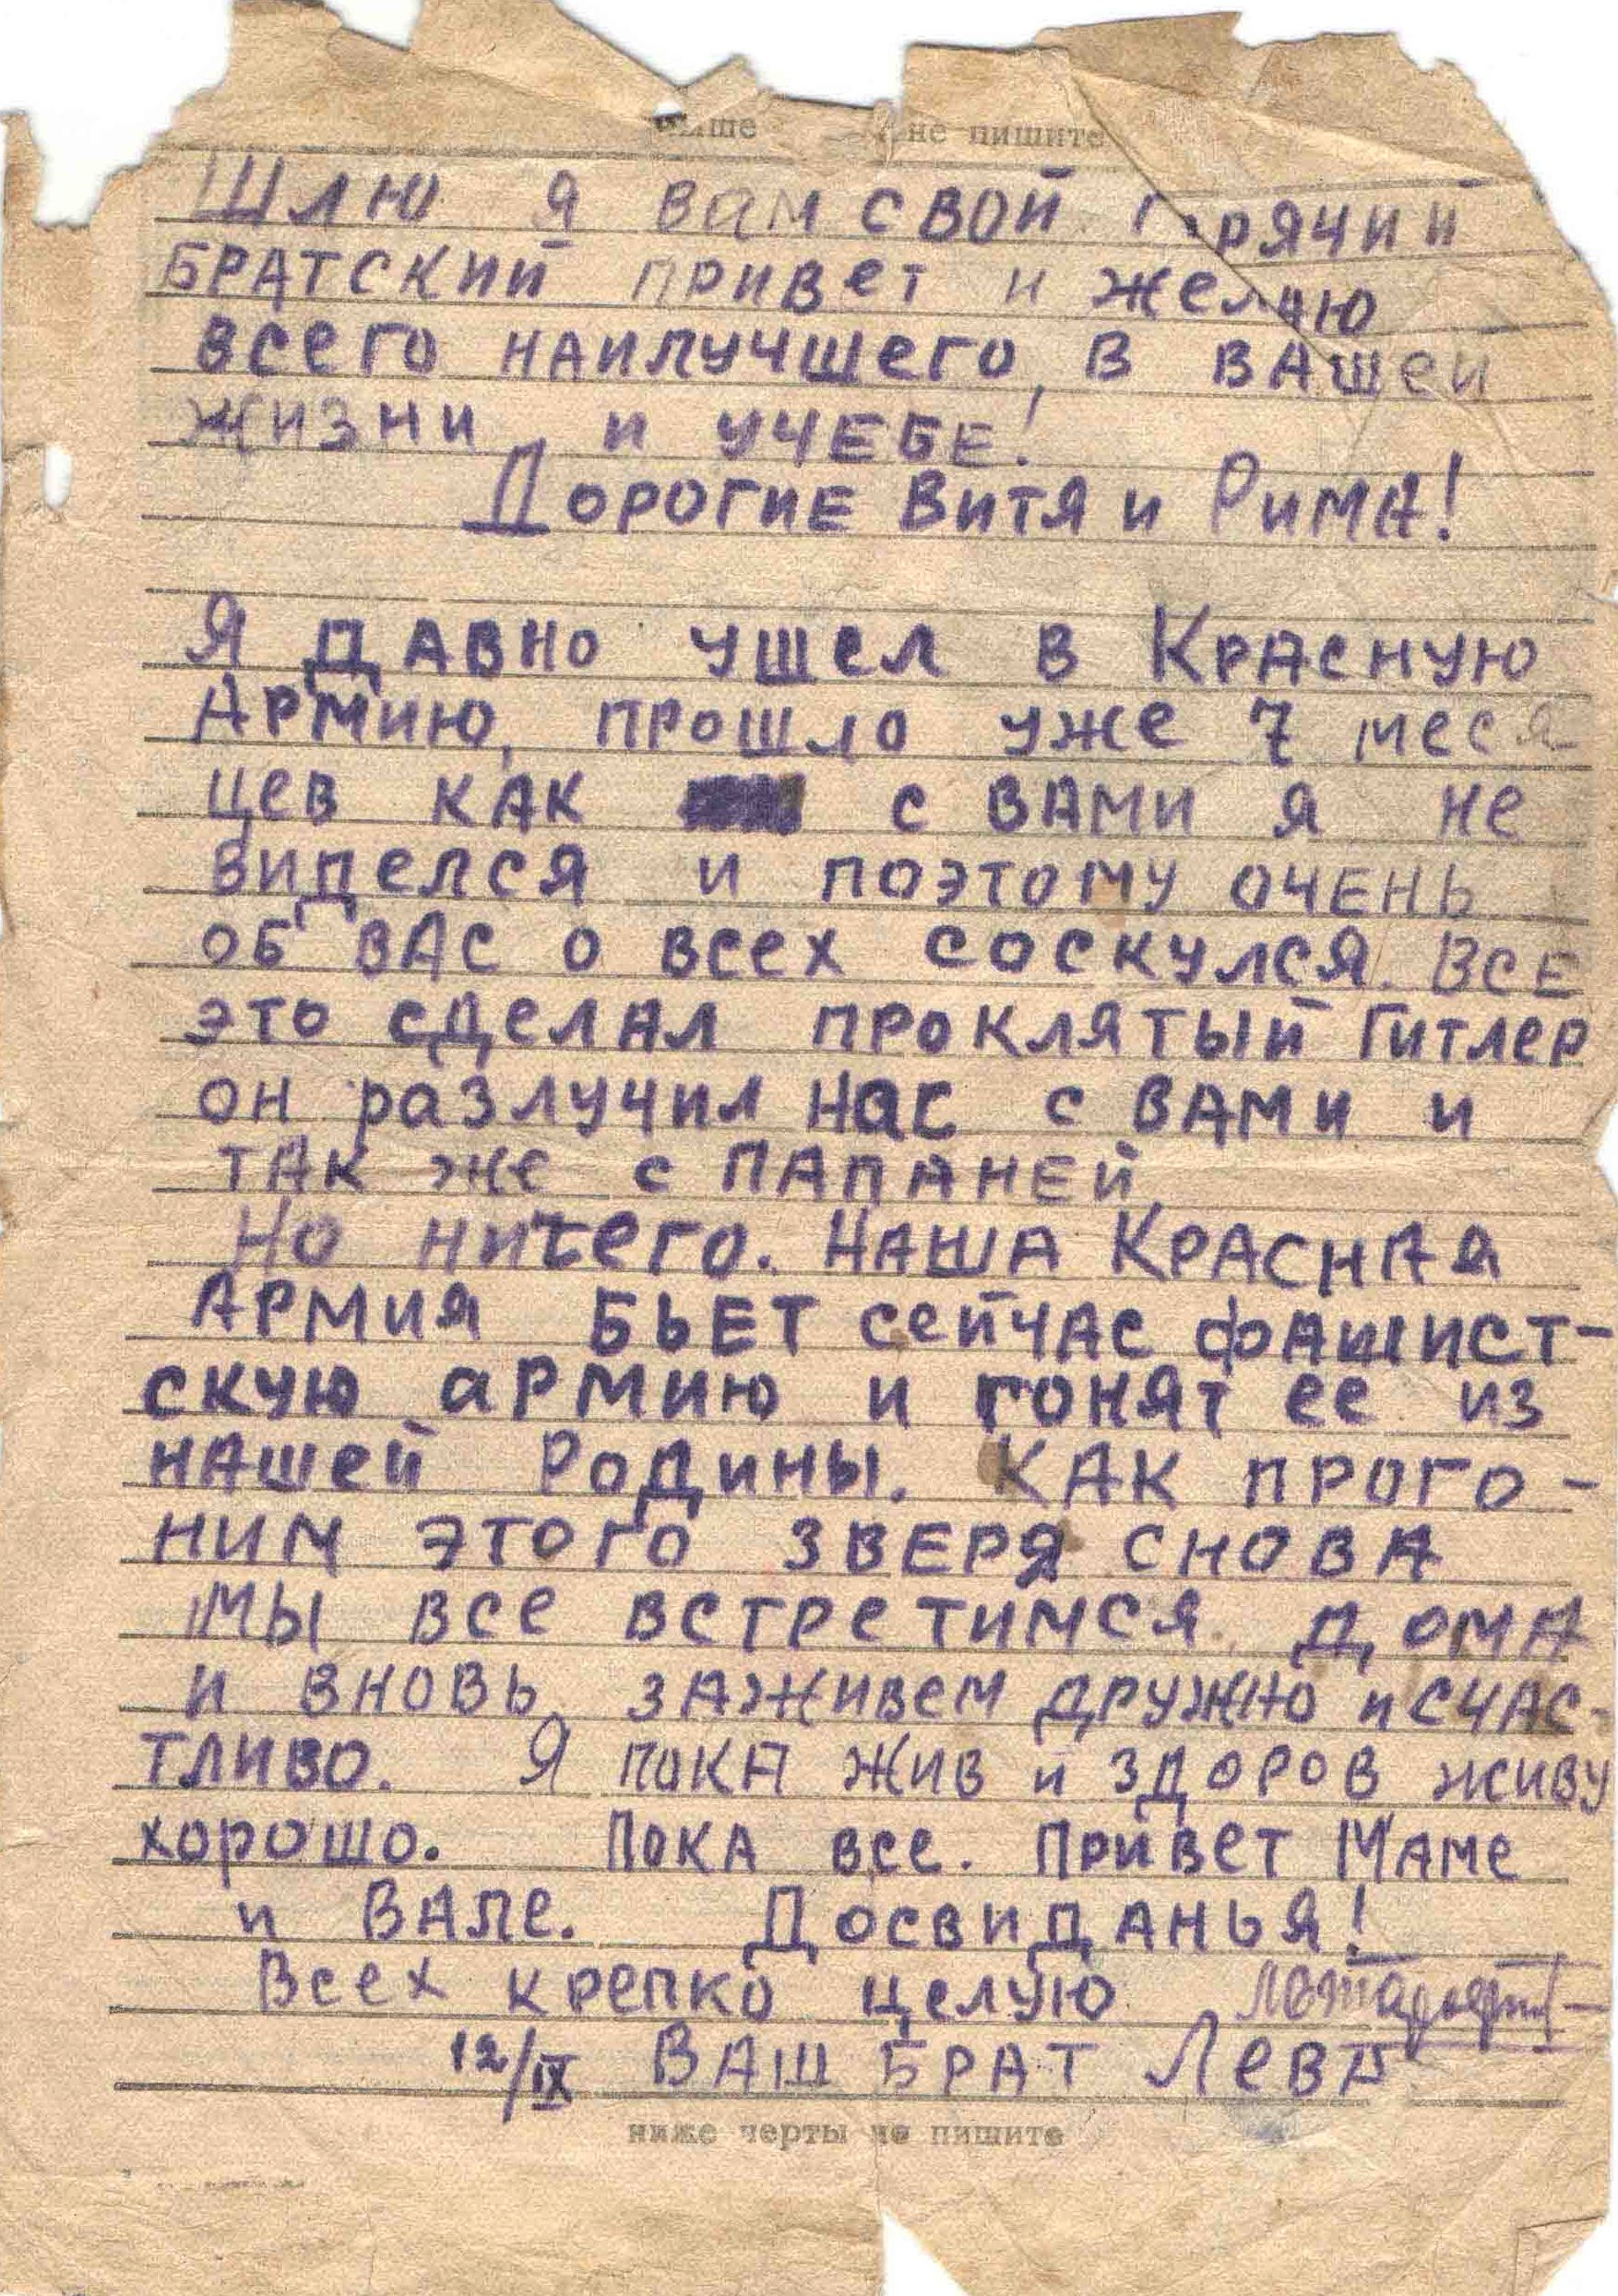 не пишите
Шлю я вам свой горячий
БРАТСКИЙ привет и желаю
всего наилучшего, в вашей
жизни и учебе!
Дорогие Витя и Рима!
Я давно ушел в Красную
Армию, прошло уже 7 меся
цев как с вами я не
виделся и поэтому очень
об вас о всех соскулся. Все
это сделал проклятый Гитлер
он разлучил нас с вами и
так же с папаней
Но ничего. Наша Красная
Армия бьет сейчас фашист-
скую армию и гонят ее из
нашей Родины. Как прого-
ним этого зверя снова
мы все встретимся дома
и вновь заживем дружно и счас-
тливо. Я пока жив и здоров живу
хорошо. Пока все. Привет Маме
и Вале. Досвиданья!
Всех крепко целую
12/IX Ваш брат Лева
ниже черты не пишите